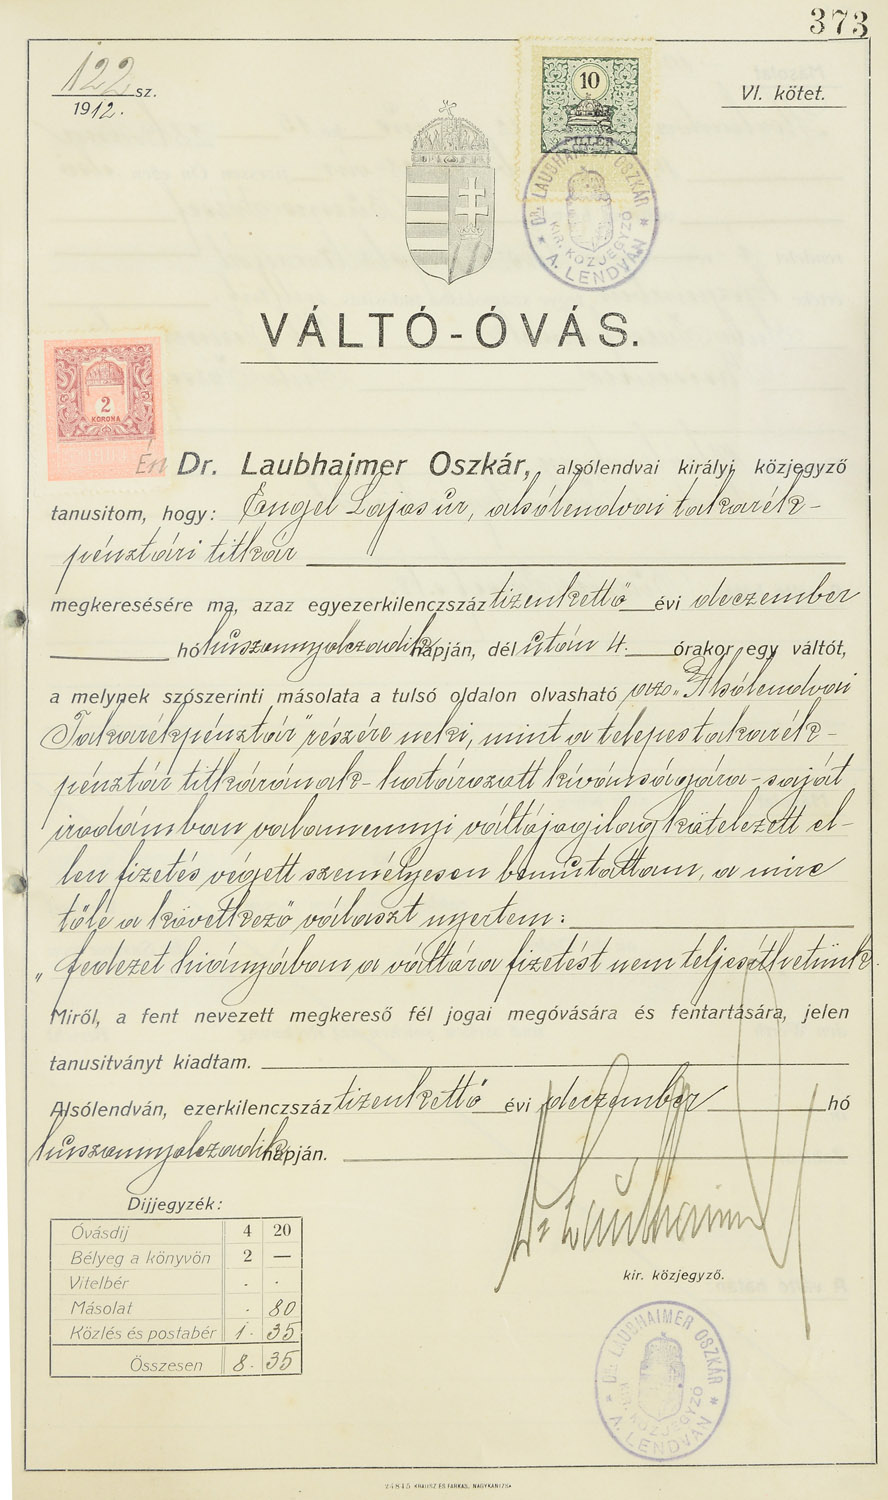 373
122 sz.
1912.
VI. kötet.
10
FILLÉR
DR. LAUBHAIMER OSZKÁR
KIR. KÖZJEGYZŐ
* A. LENDVÁN *
VÁLTÓ-ÓVÁS.
2
KORONA
Én Dr. Laubhaimer Oszkár, alsólendvai királyi közjegyző
tanusitom, hogy: Engel Lajos úr, alsólendvai takarék-
pénztári titkár
megkeresésére ma, azaz egyezerkilenczszáz tizenkettő évi deczember
hó huszonnyolczadik napján, dél után 4. órakor egy váltót,
a melynek szószerinti másolata a tulsó oldalon olvasható az „Alsólendvai
Takarékpénztár" részére neki, mint a telepes takarék-
pénztár titkárának - határozott kívánságára - saját
irodámban valamennyi váltójogilag kötelezett el-
len fizetés végett személyesen bemutattam, a mire
tőle a következő választ nyertem:
„fedezet hiányában a váltóra fizetést nem teljesíthetünk.
Miről, a fent nevezett megkereső fél jogai megóvására és fentartására, jelen
tanusitványt kiadtam.
Alsólendván, ezerkilenczszáz tizenkettő évi deczember hó
huszonnyolczadik napján.
Dr Laubhaimer
kir. közjegyző.
Dijjegyzék:
Óvásdij 4 20
Bélyeg a könyvön 2 —
Vitelbér . .
Másolat . 80
Közlés és postabér 1. 35
Összesen 8. 35
DR. LAUBHAIMER OSZKÁR
KIR. KÖZJEGYZŐ
* A. LENDVÁN *
24845 KRAUSZ ÉS FARKAS, NAGYKANIZSA